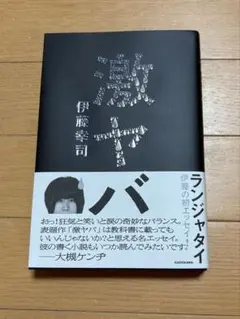 激ヤバ
伊藤幸司
ランジャタイ
伊藤の初エッセイ!
おっ!狂気と笑いと涙の奇妙なバランス。
表題作「激ヤバ」は教科書に載っても
いいんじゃないか?と思える名エッセイ。
彼の書く小説もいつか読んでみたいです。
――大槻ケンヂ
KADOKAWA